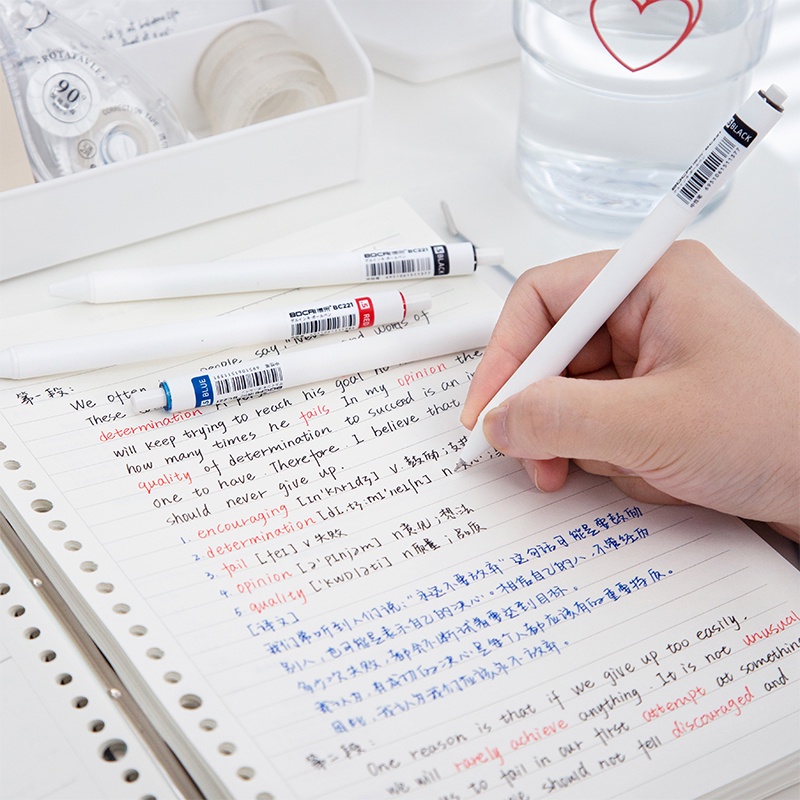 ROTAPAVE
90°
CORRECTION TAPE
BLACK
BOCAI BC221
BLACK
BOCAI BC221
RED
BLUE
第一段:
We often people say "never and words of
These determination
will keep trying to reach his goal no the
how many times he fails. In my opinion the
quality of determination to succeed is an
one to have. Therefore. I believe that
should never give up.
1. encouraging [In'kʌrɪdʒ] v.鼓励;
2. determination n
3. fail [feɪl] v失败
4. opinion [ə'pɪnjəm] n意见;想法
5. quality ['kwɒləti] n质量;品质
[译文]
我们常听到人们说:"永远不要放弃"这句话可能是要鼓励
别人,也可能是表示自己的决心。相信自己的人,不管经历
多少次失败,都会不断试着要达到目标。
我认为,有成功的决心是每个人都应该有的重要特质。
因此,我认为我们应该永不放弃。
第二段:
One reason is that if we give up too easily.
we will rarely achieve anything. It is not unusual
to fail in our first attempt at something
we should not fell discouraged and